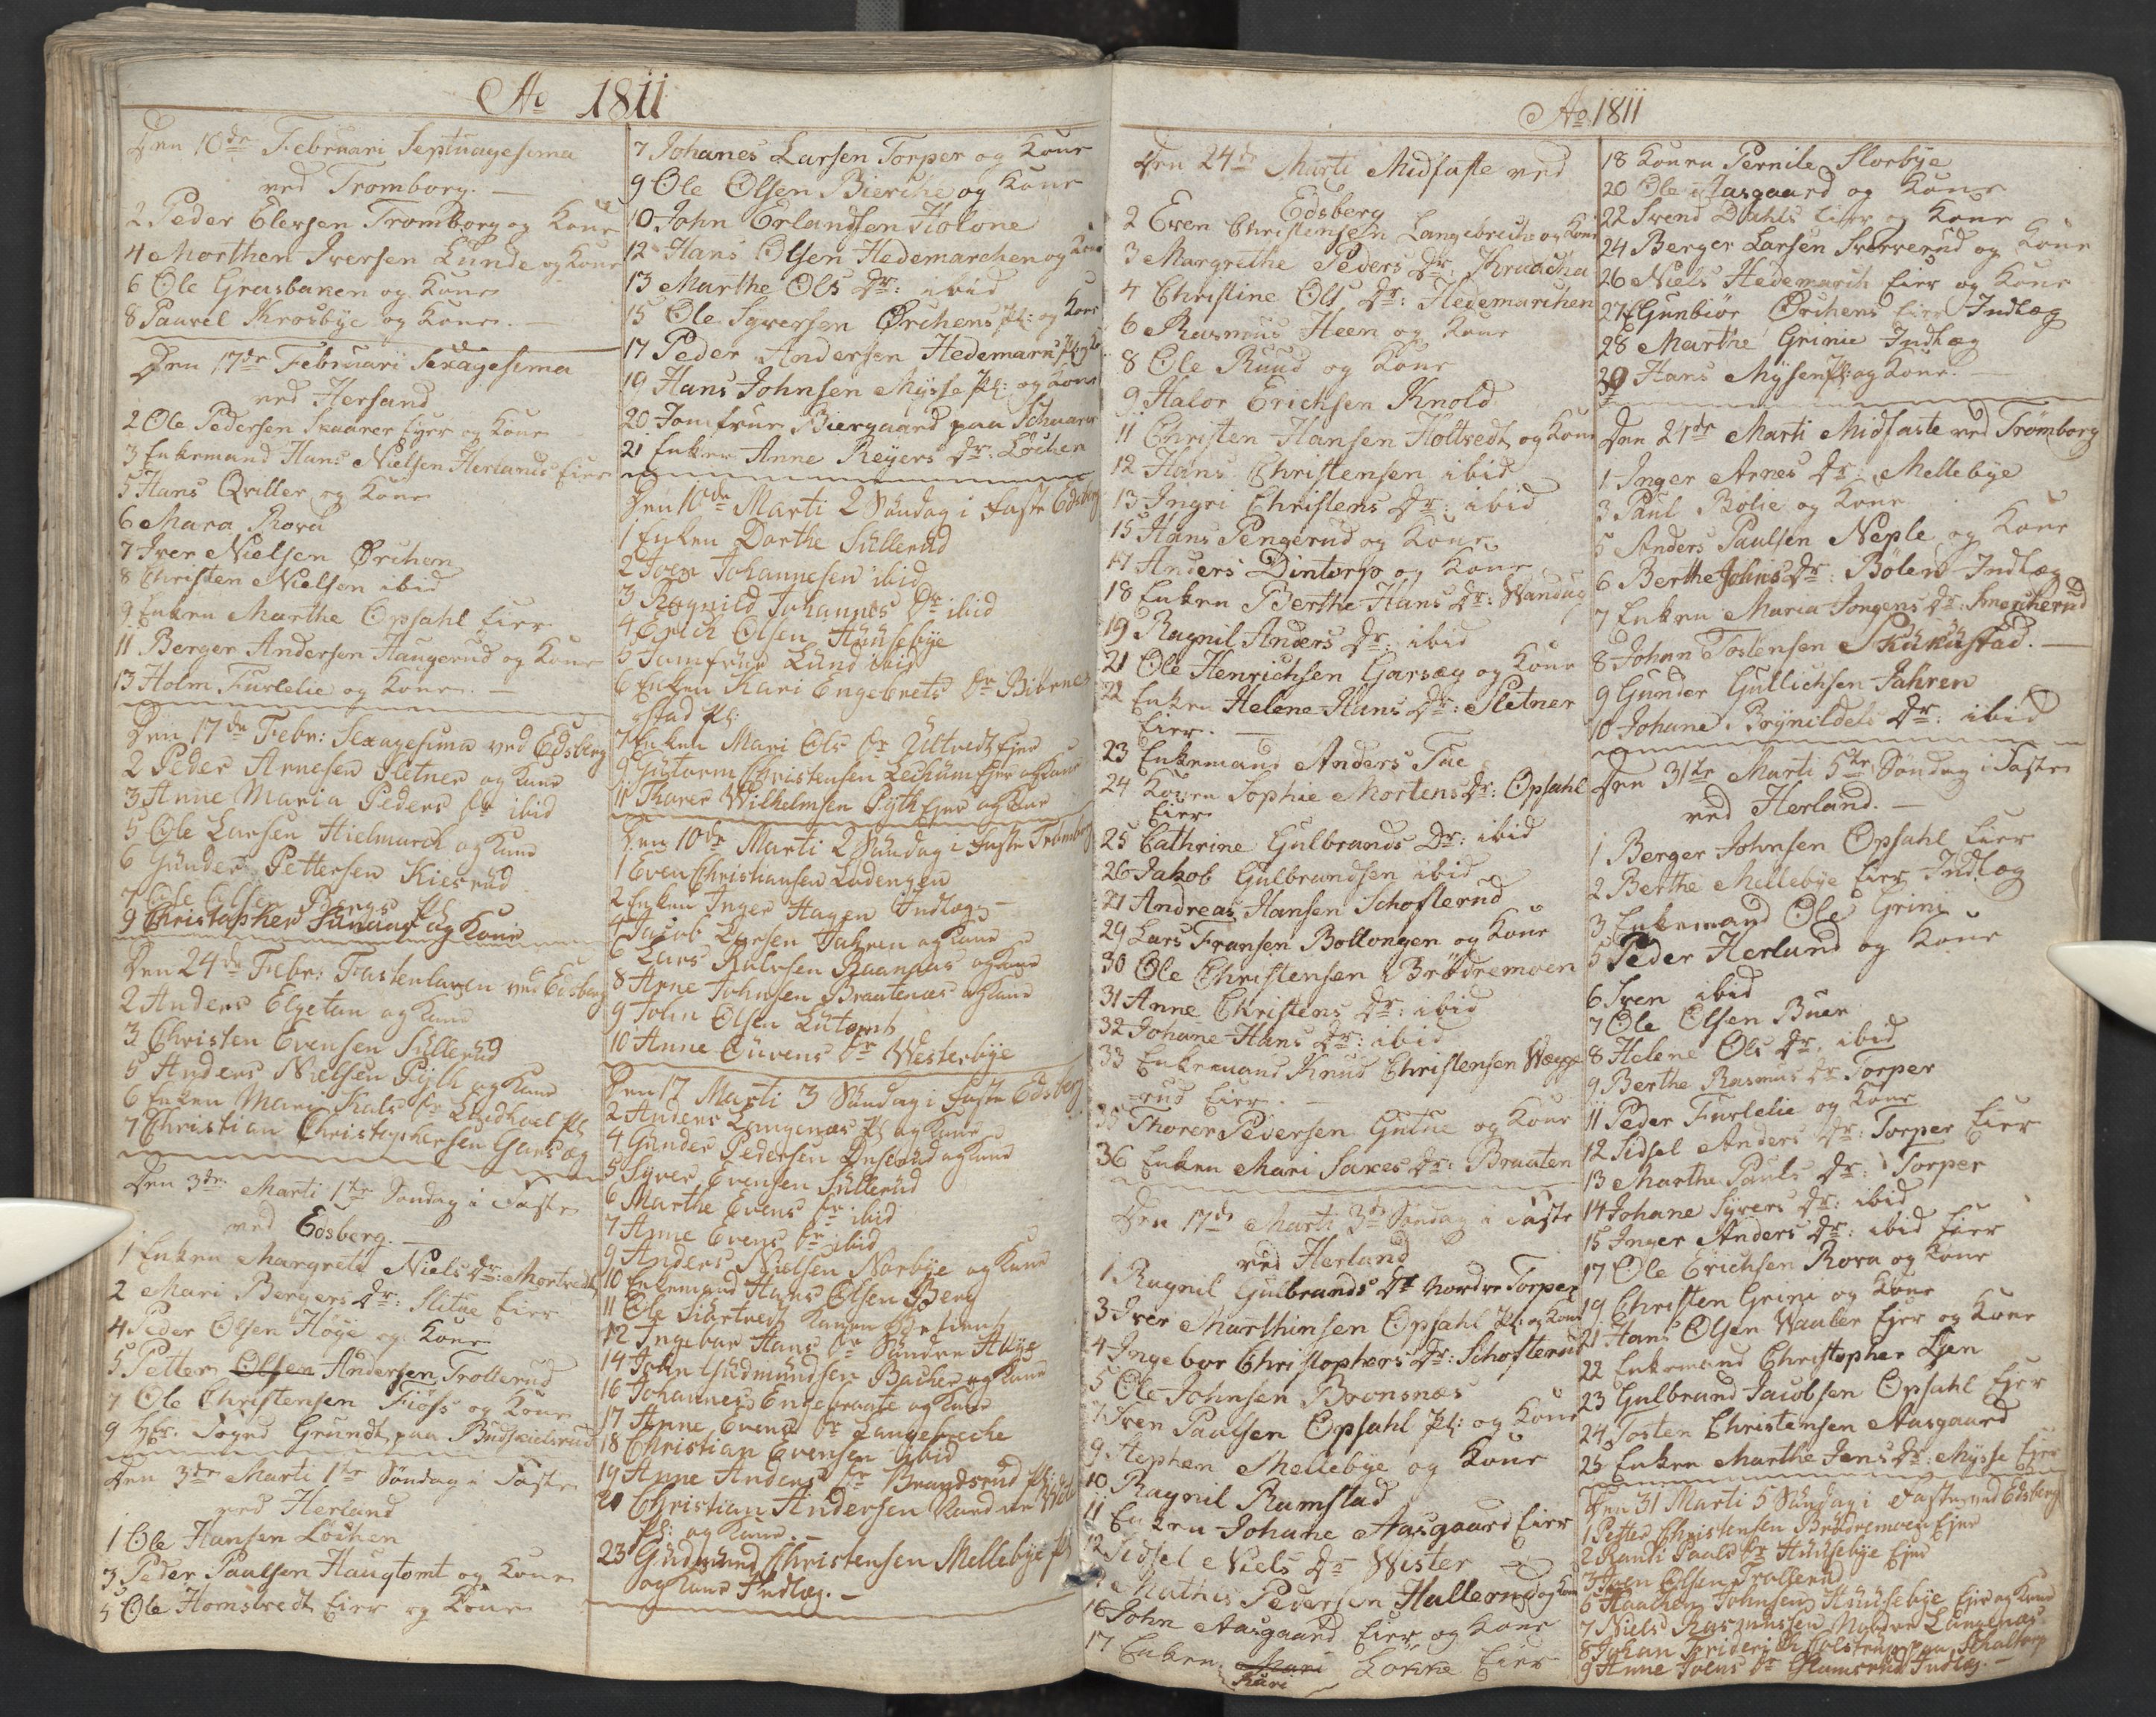 Ao 1811
Den 10de Februari Septuagesima
ved Tromborg.
2 Peder Elersen Tromborg og Kone
4 Morthen Iversen Lunde og Kone
6 Ole Grasbaken og Kone
8 Pauvel Krosbye og Kone.
Den 17de Februari Sexagesima
ved Herland
2 Ole Pedersen Skaarer Eyer og Kone
3 Enkemand Hans Nielsen Herlands Eier
5 Hans Qviller og Kone
6 Mara Rova
7 Iver Nielsen Ørchen
8 Christen Nielsen ibid
9 Enken Marthe Opsahl Eier
11 Berger Andersen Haugerud og Kone
13 Holm Furlelie og Kone.
Den 17de Febr: Sexagesima ved Edsberg
2 Peder Arnesen Sletner og Kone
3 Anne Maria Peders Dr ibid
5 Ole Larsen Hielmarch og Kone
6 Gunder Pettersen Kiserud
7 Ole Olsen Bergs Pl
9 Christopher og Kone
Den 24de Febr: Fastenlaven ved Edsberg
2 Anders Elgetun og Kone
3 Christen Evensen Süllerüd
5 Anders Nielsen Pÿth og Kone
6 Enken Mari Kals Dr Pl
7 Christian Christophersen Garsæg
Den 3de Marti 1te Søndag i Faste
ved Edsberg.
1 Enken Margrete Niels Dr: Mortvedt
2 Mari Bergers Dr: Slitue Eier
4 Peder Olsen Høye og Kone
5 Petter Olsen Andersen Trollerud
7 Ole Christensen Fiøss og Kone
9 Hr. Foged Grundt paa
Den 3de Marti 1te Søndag i Faste
ved Herland
1 Ole Hansen Løchen
3 Peder Paulsen Haugtomt og Kone
5 Ole Homstvedt Eier og Kone
7 Johanes Larsen Torper og Kone
9 Ole Olsen Bierche og Kone
10 John Erlandsen Kolone
12 Hans Olsen Hedemarchen og Kone
13 Marthe Ols Dr: ibid
15 Ole Syversen Ørchens Pl: og Kone
17 Peder Andersen Hedemark Pl og
19 Hans Johnsen Mysse Pl: og Kone
20 Jomfrue Biergaard paa
21 Enken Anne Reyers Dr: Løchen
Den 10de Marti 2 Søndag i Faste Edsberg
1 Enken Dorthe Süllerüd
2 Joen Johannesen ibid
3 Rognild Johannes Dr ibid
4 Erich Olsen Hüüsebÿe
5 Jomfrue Lund ibid
6 Enken Kari Engebrets Dr Biørne-
stad Pl:
7 Enken Mari Ols Dr Ültvedt Ejer
9 Gütorm Christensen Lechüm Ejer og Kone
11 Thorer Wilhelmsen Pÿth Ejer og Kone
Den 10de Marti 2 Søndag i Faste Tromborg
1 Even Christiansen Ladengen
2 Enken Inger Hagen Indlæg
4 Jacob Larsen Jahren og Kone
6 Lars Kalvsen Raannas og Kone
8 Arne Johnsen Braatenæs og Kone
9 John Olsen Lütomt
10 Anne Güvens Dr Westerbÿe
Den 17 Marti 3 Søndag i Faste Edsberg
2 Anders Langenæs Pl og Kone
4 Günder Pedersen og Kone
5 Syver Evensen Süllerüd
6 Marthe Evens Dr ibid
7 Anne Evens Dr ibid
9 Anders Nielsen Norbÿe og Kone
10 Enkemand Hans Olsen Berg
11 Ole Siørtvedt Konen
12 Ingebor Hans Dr Søndre Høÿe
14 John Gudmündsen Bacher og Kone
16 Johannes Engebraate og Kone
17 Anne Evens Dr Langebreche
18 Christian Evensen ibid
19 Anne Anders Dr Brandsrüd Pl:
20 Christian Andersen
Pl: og Kone.
23 Güdmünd Christensen Mellebÿe Pl
og Kone Indlæg.
Ao 1811
Den 24de Marti Midfaste ved
Edsberg
2 Even Christensen Langebreche og Kone
3 Margrethe Peders Dr: Kraacha
4 Christine Ols Dr: Hedemarchen
6 Rasmus Heen og Kone
8 Ole Ruud og Kone
9 Halor Erichsen Knold
11 Christen Hansen Holtvedt og Kone
12 Hans Christensen ibid
13 Ingri Christens Dr: ibid
15 Hans Pengerud og Kone
17 Anders Dintorp og Kone
18 Enken Berthe Hans Dr: Wandug
19 Ragnil Anders Dr: ibid
21 Ole Henrichsen Garsæg og Kone
22 Enken Helene Hans Dr: Sletner
Eier.
23 Enkemand Anders Tue
24 Konen Sophie Mortens Dr: Opsahl
Eier
25 Cathrine Gulbrands Dr: ibid
26 Jakob Gulbrandsen ibid
27 Andreas Hansen Schofterud
29 Lars Fransen Bollongen og Kone
30 Ole Christensen Brødremoen
31 Anne Christens Dr: ibid
32 Johane Hans Dr: ibid
33 Enkemand Knud Christensen Wegge
-rud Eier.
35 Thorer Pedersen Gutue og Kone
36 Enken Mari Saxes Dr: Braaten
Den 17de Marti 3de Søndag i Faste
ved Herland
1 Ragnil Gulbrands Dr Nordre Torper
3 Iver Marthinsen Opsahl Pl: og Kone
4 Ingebor Christophers Dr: Schofterud
5 Ole Johnsen Bronsnæs
7 Sven Paulsen Opsahl Pl: og Kone
9 Stephen Mellebye og Kone
10 Ragnil Ramstad
11 Enken Johane Aasgaard Eier
12 Sidsel Niels Dr Wister
Mathis Pedersen Hallerud og Kone
16 John Aasgaard Eier og Kone
17 Enken Mari Løkke Eier
Kari
18 Konen Pernile Slorbye
20 Ole Aasgaard og Kone
22 Svend Dahls Eier og Kone
24 Berger Larsen Sververud og Kone
26 Niels Hedemarch Eier og Kone
27 Gunbiør Ørchens Eier Indlæg
28 Marthe Grinie Indlæg
30 Hans Mysen Pl: og Kone.
Den 24de Marti Midfaste ved Trømborg
1 Inger Arnes Dr: Mellebye
3 Paul Bolie og Kone
5 Anders Paulsen Neple og Kone
6 Berthe Johns Dr: Bølen Indlæg
7 Enken Maria Jongens Dr: Smercherud
8 Johan Tostensen
9 Gunder Gullichsen Jahren
10 Johane Brynildels Dr: ibid
Den 31te Marti 5te Søndag i Faste
ved Herland.
1 Berger Johnsen Opsahl Eier
2 Berthe Mellebye Eier Indlæg
3 Enkemand Ole Grini
5 Peder Herland og Kone
6 Sven ibid
7 Ole Olsen Buer
8 Helene Ols Dr: ibid
9 Berthe Rasmus Dr Torper
11 Peder Furlelie og Kone
12 Sidsel Anders Dr: Torper Eier
13 Marthe Pauls Dr: Torper
14 Johane Syvers Dr: ibid
15 Inger Anders Dr: ibid Eier
17 Ole Erichsen Rova og Kone
19 Christen Grini og Kone
21 Hans Olsen Waaler Ejer og Kone
22 Enkemand Christopher Lien
23 Gulbrand Jacobsen Opsahl Ejer
24 Tosten Christensen Aasgaard
25 Enken Marthe Jens Dr: Mysse Ejer
Den 31 Marti 5 Søndag i Faste ved Edsberg
1 Petter Christensen Brødremoen Ejer
2 Randi Pauls Dr Hüüsebÿe Ejer
3 Joen Olsen Trollerud
6 Haachen Johnsen Hüüsebÿe Ejer og Kone
7 Niels Rasmussen Nordre Langenæs
8 Johan Frideric Holstrup paa
9 Anne Joens Dr Glamsrüd Indlæg.